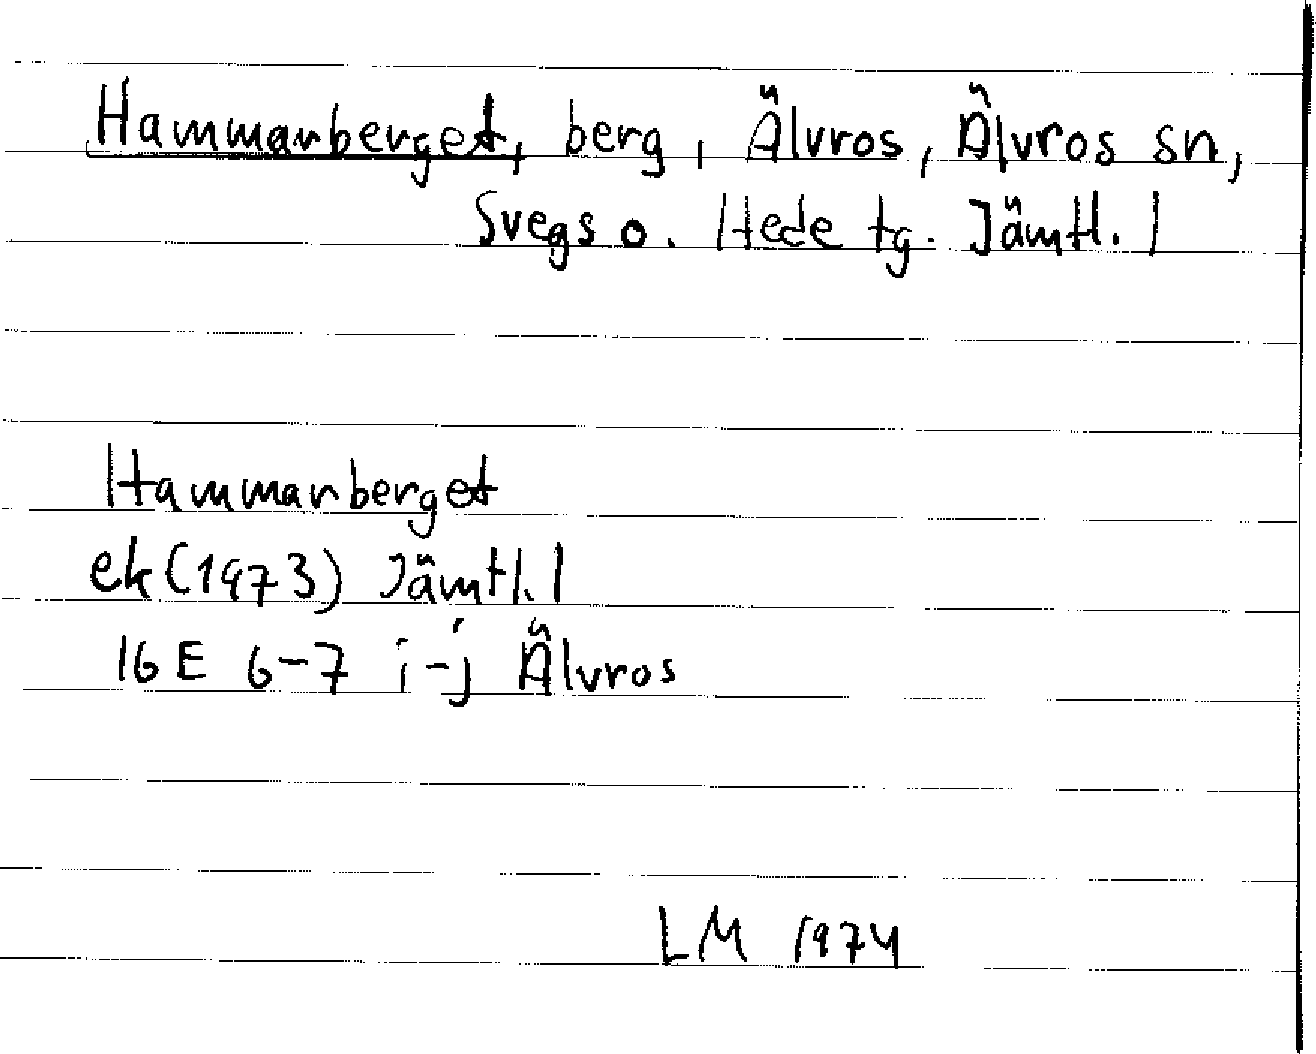 Hammarberget, berg, Älvros, Älvros sn,
Svegs o. Hede tg. Jämtl. l
Hammarberget
ek (1973) Jämtl. l
16 E 6-7 i-j Älvros
LM 1974